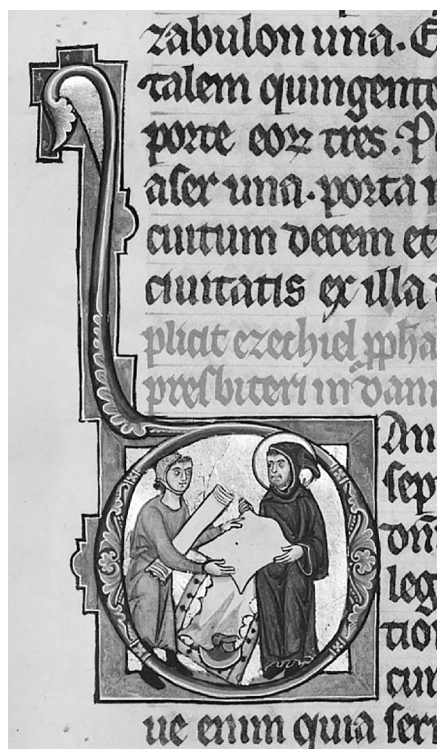 zabulon una. E
talem quingente
porte eorꝝ tres. Pl
aser una. porta n
cuitum decem et
ciuitatis ex illa
plicit ezechiel ꝓpha
presbiteri in dani
An
sep
dom̄
leg
tion
cur
ue enim quia ser